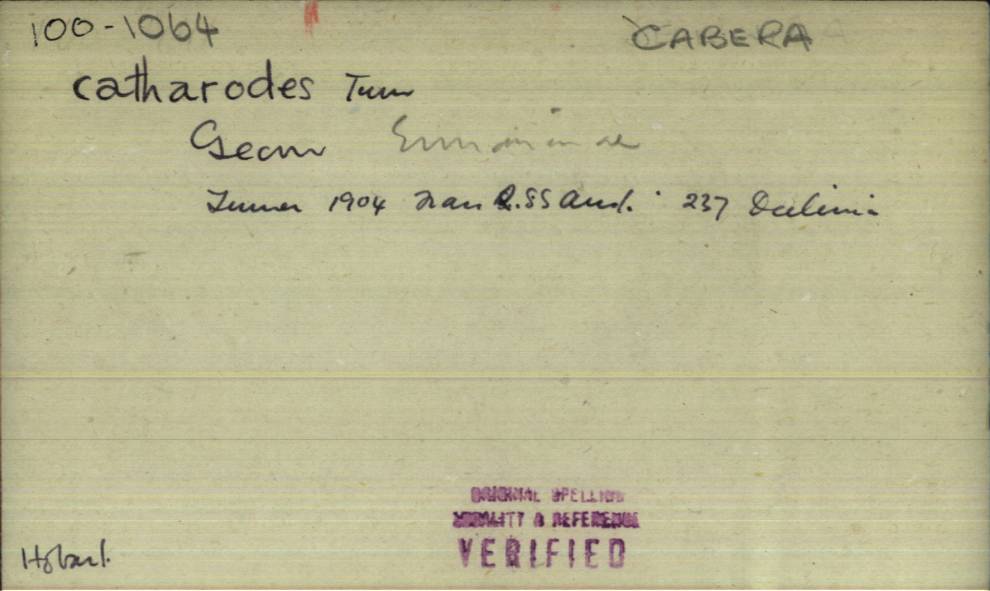 100-1064 CABERA
catharodes Turn
Geom Ennominae
Turner 1904 Tran R.SS Aust. 237 Decliniā
ORIGINAL SPELLING
LOCALITY & REFERENCE
VERIFIED
Hobart